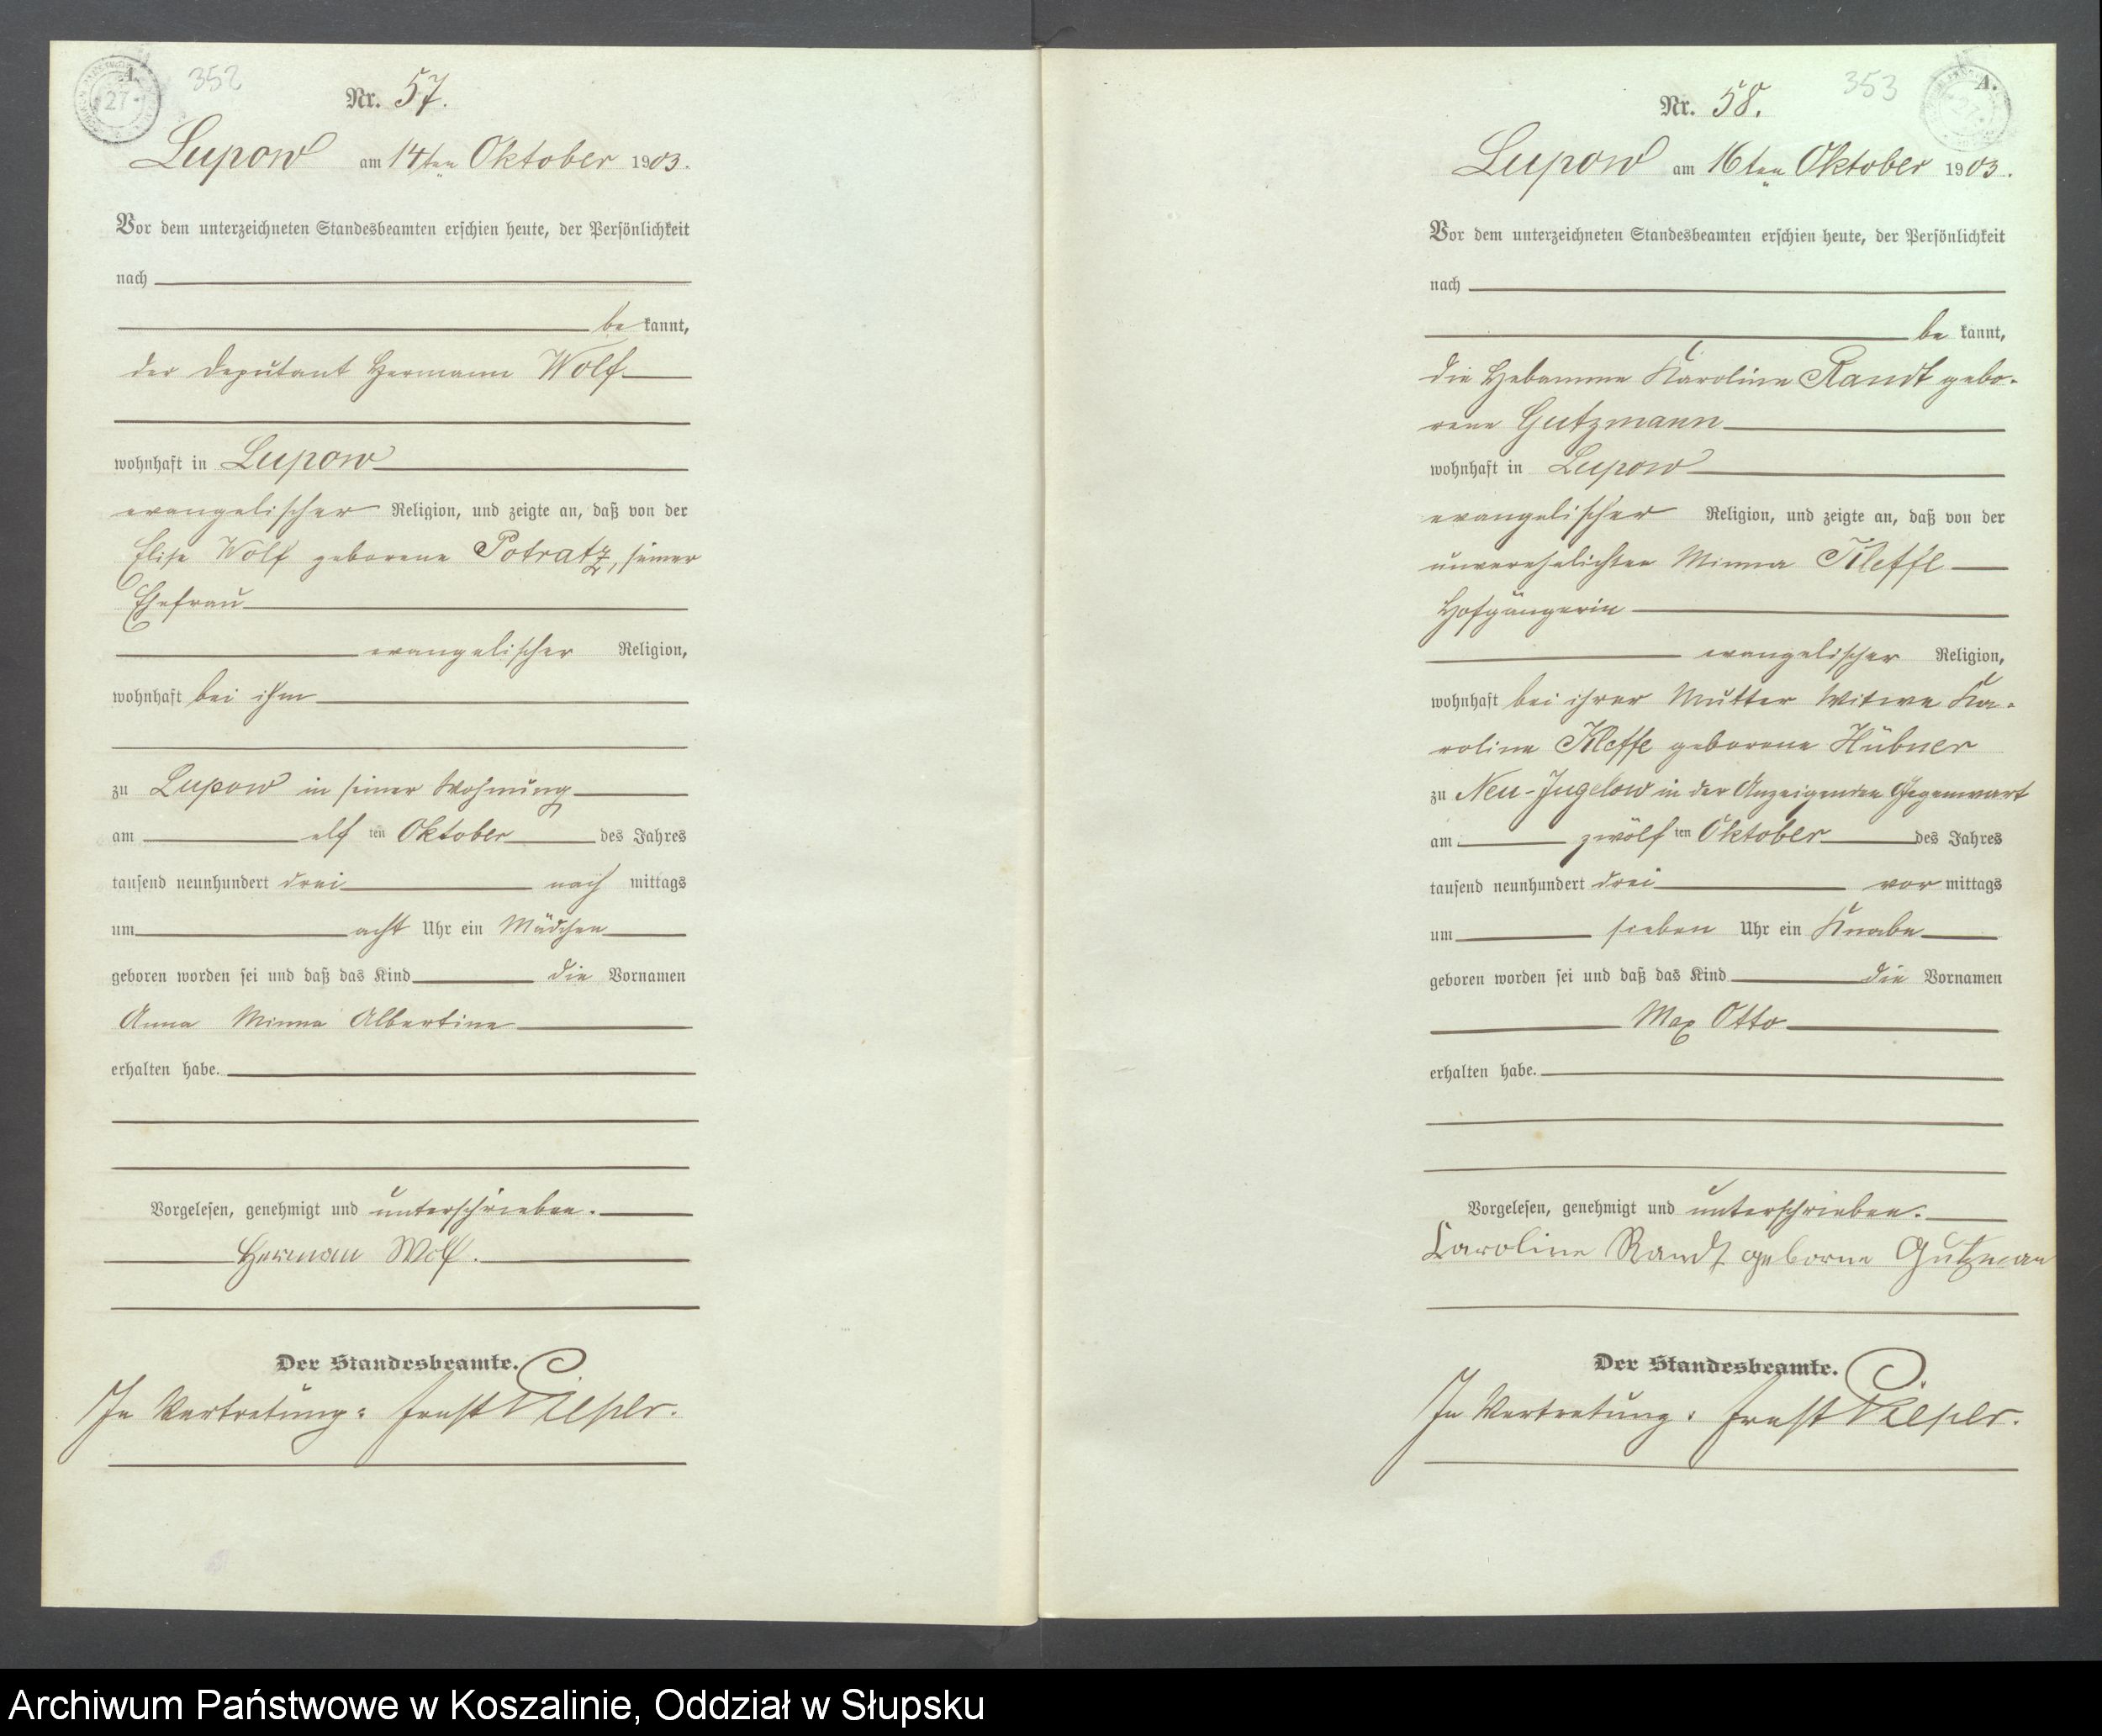 A.
27
352
Nr. 57.
Lupow am 14ten Oktober 1903.
Vor dem unterzeichneten Standesbeamten erschien heute, der Persönlichkeit
nach
be kannt,
der Deputant Hermann Wolf
wohnhaft in Lupow
evangelischer Religion, und zeigte an, daß von der
Elise Wolf geborene Potratz, seiner
Ehefrau
evangelischer Religion,
wohnhaft bei ihm
zu Lupow in seiner Wohnung
am elf ten Oktober des Jahres
tausend neunhundert drei nach mittags
um acht Uhr ein Mädchen
geboren worden sei und daß das Kind die Vornamen
Anna Minna Albertine
erhalten habe.
Vorgelesen, genehmigt und unterschrieben.
Herman Wolf.
Der Standesbeamte.
In Vertretung: Ernst Pieper.
353
A.
Nr. 58.
Lupow am 16ten Oktober 1903.
Vor dem unterzeichneten Standesbeamten erschien heute, der Persönlichkeit
nach
be kannt,
die Hebamme Karoline Randt gebo-
rene Gutzmann
wohnhaft in Lupow
evangelischer Religion, und zeigte an, daß von der
unverehelichten Minna Kleffe
Hofgängerin
evangelischer Religion,
wohnhaft bei ihrer Mutter Witwe Ka-
roline Kleffe geborene Hübner
zu Neu-Jugelow in der Anzeigenden Gegenwart
am zwölf ten Oktober des Jahres
tausend neunhundert drei vor mittags
um sieben Uhr ein Knabe
geboren worden sei und daß das Kind die Vornamen
Max Otto
erhalten habe.
Vorgelesen, genehmigt und unterschrieben.
Caroline Randt geborne Gutzman
Der Standesbeamte.
In Vertretung: Ernst Pieper.
Archiwum Państwowe w Koszalinie, Oddział w Słupsku